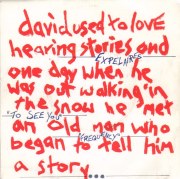 david used to love
hearing stories and
EXPELAIRES
one day when he
was out walking in
the snow he met
"TO SEE YOU"
an old man who
FREQUENCY
began to tell him
a story...